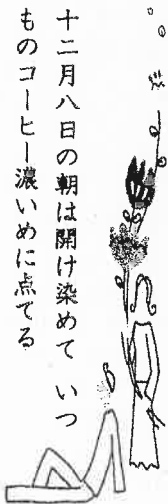 十二月八日の朝は開け染めて いつ
ものコーヒー濃いめに点てる